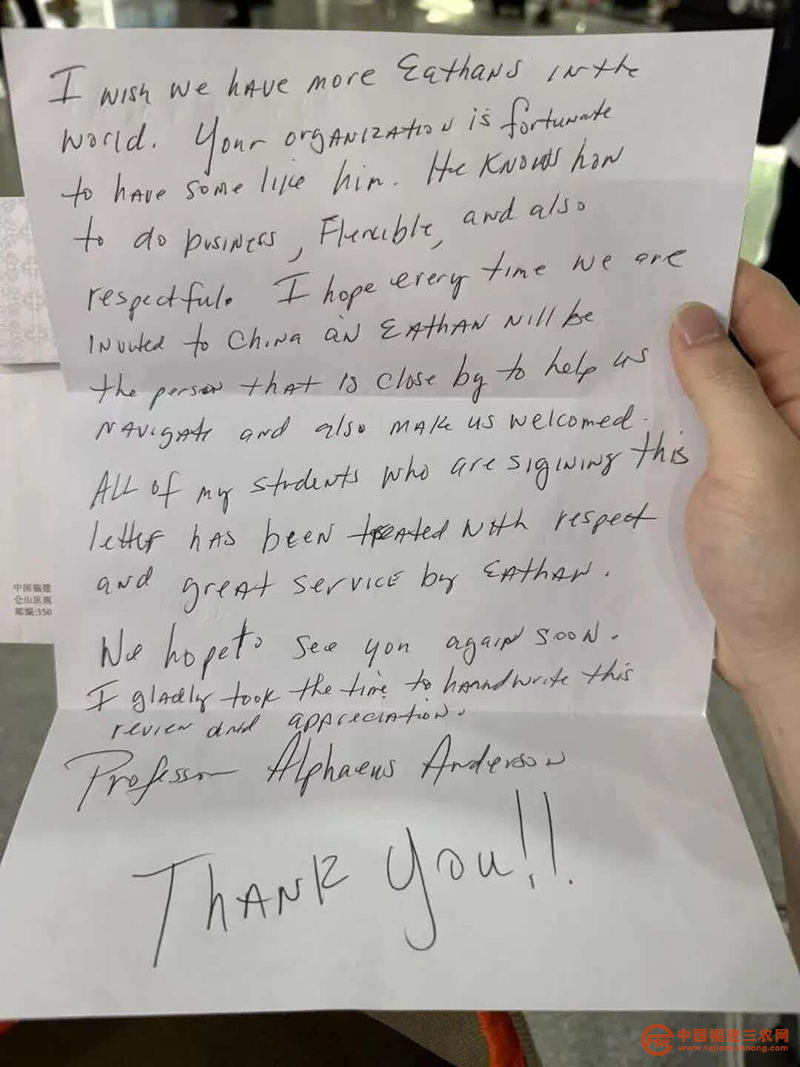 I wish we have more Eathans in the
world. Your organization is fortunate
to have some like him. He knows how
to do business, Flexible, and also
respectful. I hope every time we are
invited to China an Eathan will be
the person that is close by to help us
navigate and also make us welcomed.
All of my students who are signing this
letter has been treated with respect
and great service by Eathan.
We hope to see you again soon.
I gladly took the time to handwrite this
review and appreciation.
Professor Alphaeus Anderson
Thank you!!
中国福建
仓山区
邮编:350
中国福建三农网
www.fujiansannong.com